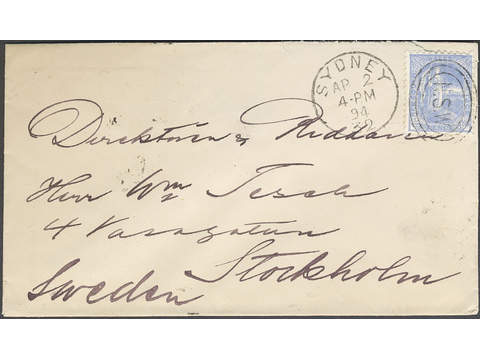 SYDNEY
AP 2
4-PM
94
39
NSW
Direktören & Riddaren
Herr Wm Tesch
4 Vasagatan
Stockholm
Sweden